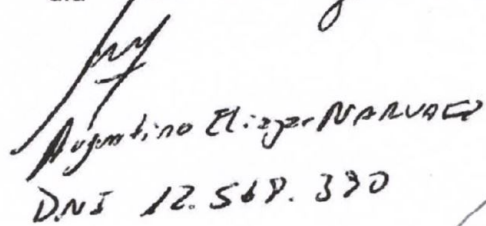 Argentino Eliezer NARVAEZ
DNI 12.568.390